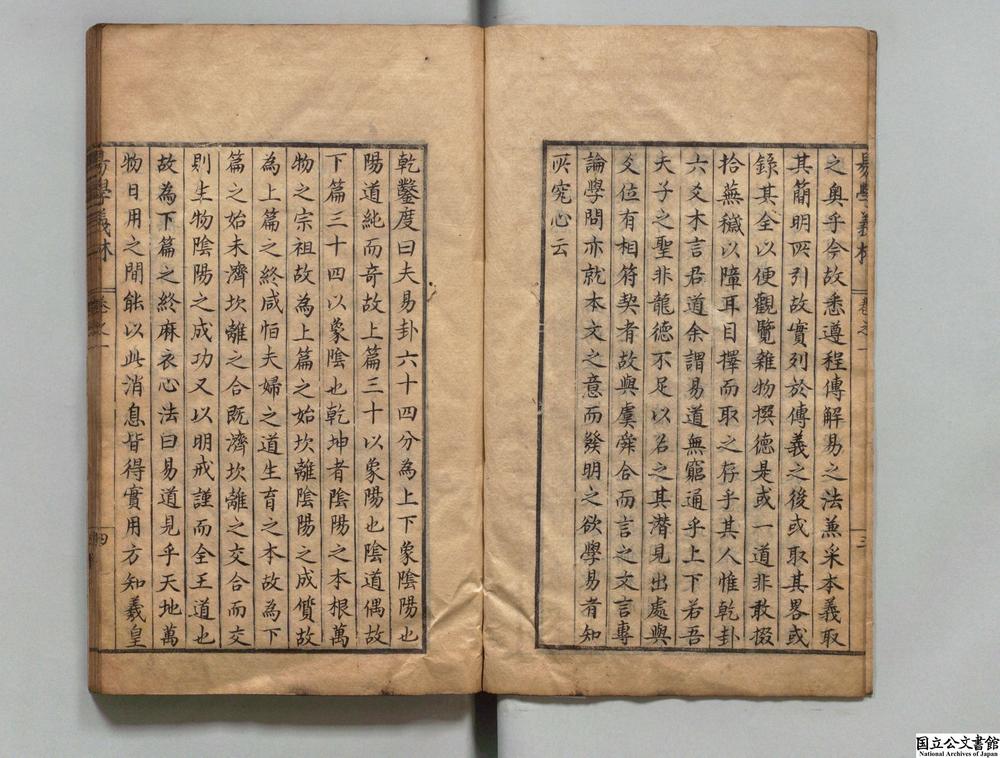 易學義林 卷之一 三
之奧乎今故悉遵程傳解易之法蒹采本義取
其簡明所引故實列於傳義之後或取其畧或
錄其全以便觀覽雜物撰德是或一道非敢掇
拾蕪穢以障耳目擇而取之存乎其人惟乾卦
六爻木言君道余謂易道無窮通乎上下若吾
夫子之聖非龍德不足以名之其潛見出處與
爻位有相符契者故與虞舜合而言之文言專
論學問亦就本文之意而發明之欲學易者知
所究心云
乾鑿度曰夫易卦六十四分為上下象陰陽也
陽道純而奇故上篇三十以象陽也陰道偶故
下篇三十四以象陰也乾坤者陰陽之本根萬
物之宗祖故為上篇之始坎離陰陽之成質故
為上篇之終咸恒夫婦之道生育之本故為下
篇之始未濟坎離之合既濟坎離之交合而交
則生物陰陽之成功又以明戒謹而全王道也
故為下篇之終麻衣心法曰易道見乎天地萬
物日用之間能以此消息皆得實用方知羲皇
易學義林 卷之一 四
国立公文書館
National Archives of Japan